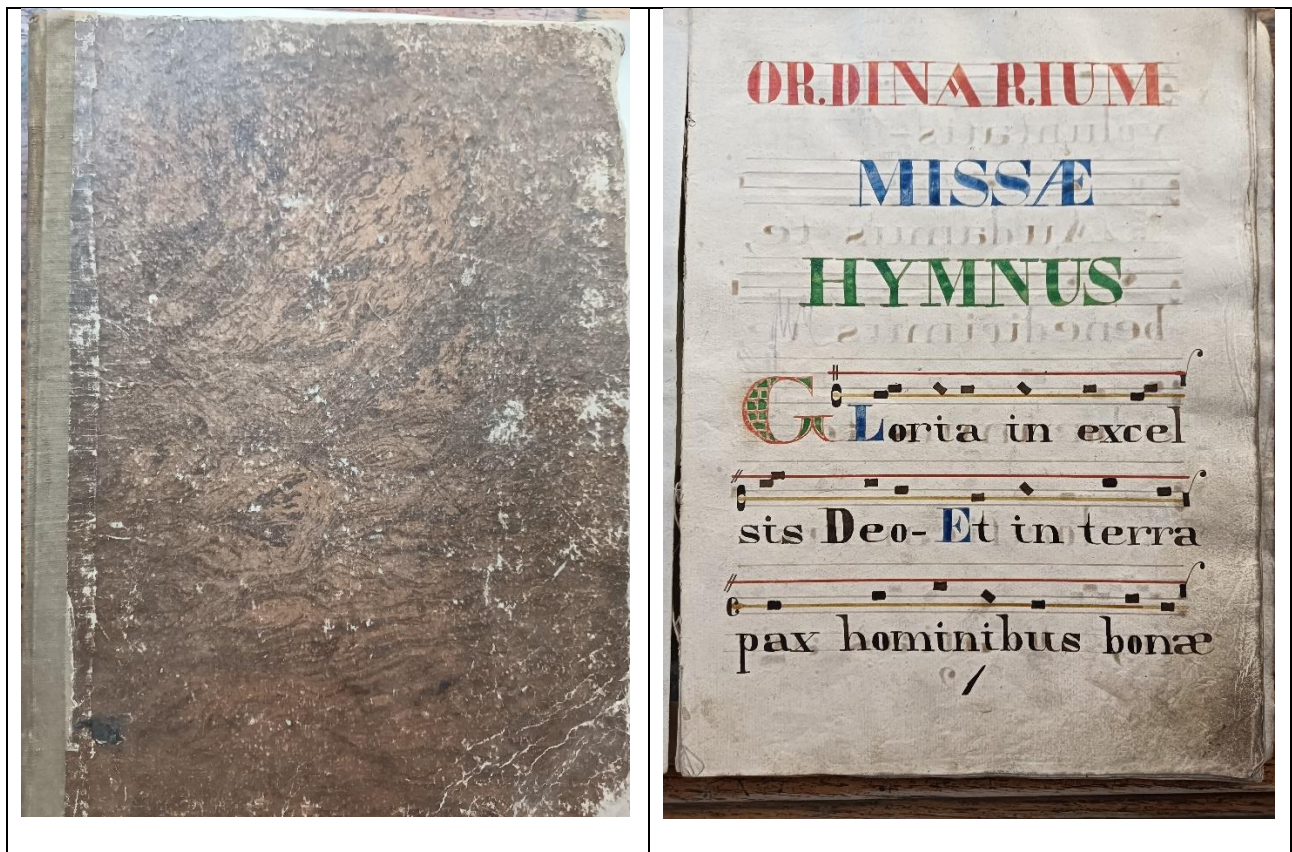 ORDINARIUM
MISSÆ
HYMNUS
GLoria in excel
sis Deo- Et in terra
pax hominibus bonæ